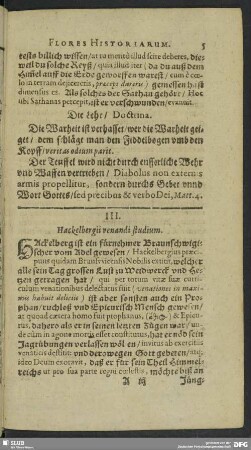 FLORES HISTORIARUM. 5
rests billich wissen/ ut ra memo illud scire deberes, die-
weil du solche Keyff/ quia illud iter/ Da du auß dem
Himel auff die Erde geworffen warest/ cum è cœ-
lo in terram dejicereris, præceps
dimensus es. Als solches der Sathan gehört/ Hoc
ubi Sathanas percepit, ist er verschwunden/ evanuit.
Die Lehr/ Doctrina.
Die Warheit ist verhasset/ wer die Warheit gei-
get/ dem schlägt man den Fiddelbogen umb den
Kopff/ veritas odium parit.
Der Teuffel wird nicht durch eusserliche Wehr
und Waffen vertrieben/ Diabolus non externis
armis propellitur, sondern durchs Gebet unnd
Wort Gottes/ sed precibus & verbo Dei, Matt. 4.
III.
Hackelbergii venandi studium.
HAckelberg ist ein fürnehmer Braunschwigi-
scher vom Adel gewesen/ Hackelbergius præci-
puus quidam Brunsvicensis Nobilis extitit, welcher
alle sein Tag grossen Lust zu Weydwerck und He-
tzen getragen hat/ qui per totum vitæ suæ curri-
culum venationibus delectatus fuit (venationes in maxi-
mis habuit deliciis) ist aber sonsten auch ein Pro-
phan/ ruchloß und Epicurisch Mensch gewesen/
at quoad cætera homo fuit prophanus, & Epicu-
reus, dahero als er in seinen letzten Zügen war/ un-
de cùm in agone mortis esset constitutus, hat er nö sein
Jagtrübungen verlassen wöllen/ invitus ab exercitiis
venaticis destitit und derowegen Gott gebeten/
ideò Deum exoravit, daß er für sein Theil Himmel-
reichs ut pro sua parte regni cœlestis, möchte biß an
A iij Jüng-
SLUB